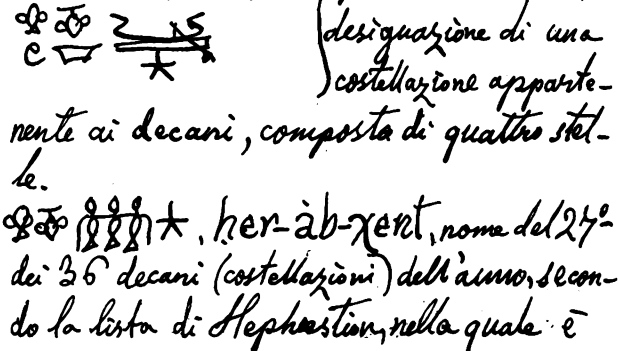 designazione di una
costellazione apparte-
nente ai decani, composta di quattro stel-
le.
, her-àb-χent, nome del 27º
dei 36 decani (costellazioni) dell'anno, secon-
do la lista di Hephæstion, nella quale è